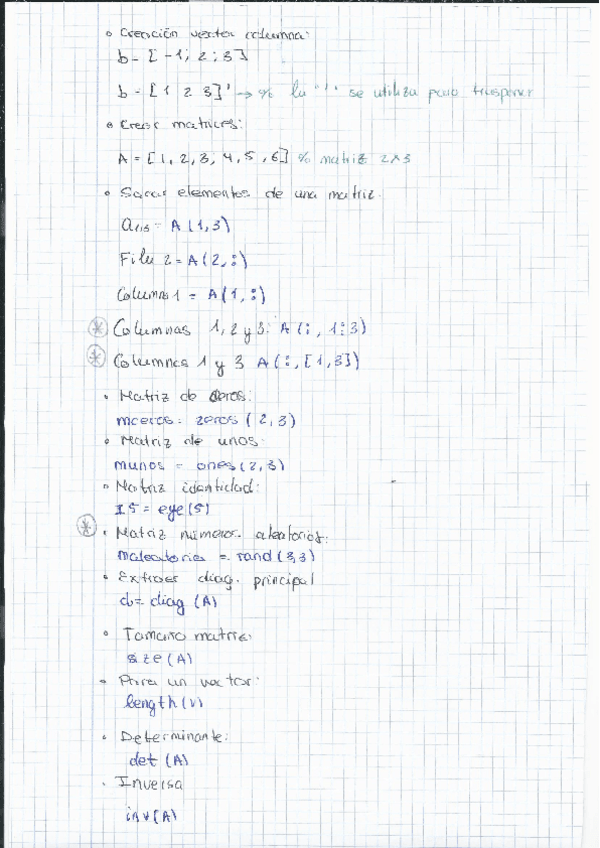 • Creación vector columna:
b = [ -1; 2 ; 3 ]
b = [ 1 2 3]' → % la " ' " se utiliza para trasponer
• Crear matrices:
A = [ 1, 2, 3, 4, 5, 6] % matriz 2x3
• Sacar elementos de una matriz.
a1,3 = A(1,3)
Fila 2 = A(2,:)
Columna 1 = A(1,:)
* Columnas 1, 2 y 3: A(:, 1:3)
* Columnas 1 y 3 A(:, [1,3])
• Matriz de ceros:
mceros: zeros(2,3)
• Matriz de unos:
munos = ones(2,3)
• Matriz identidad:
I5 = eye(5)
* • Matriz números aleatorios:
maleatoria = rand(3,3)
• Extraer diag. principal
d = diag(A)
• Tamaño matriz:
size(A)
• Para un vector:
length(v)
• Determinante:
det(A)
• Inversa
inv(A)